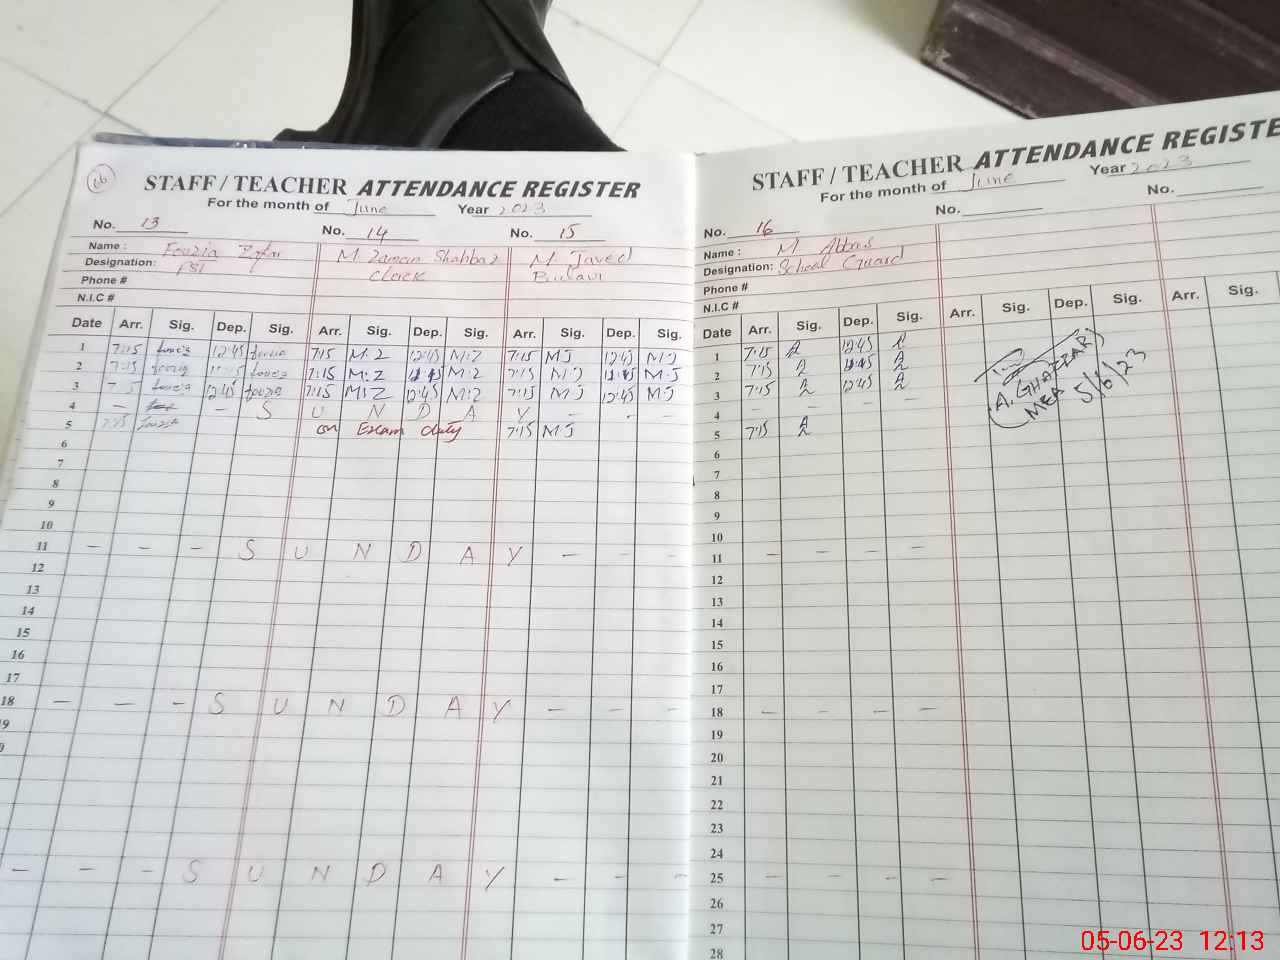 66
STAFF / TEACHER ATTENDANCE REGISTER
For the month of June Year 2023
No. 13 No. 14 No. 15
Name : Fouzia M Zaman Shahbaz M. Javed
Designation: PST Clerk
Phone #
N.I.C #
Date Arr. Sig. Dep. Sig. Arr. Sig. Dep. Sig. Arr. Sig. Dep. Sig.
1 7:15 fouzia 12:45 fouzia 7:15 M.Z 12:45 M.Z 7:15 MJ 12:45 M.J
2 7:15 fouzia fouzia 7:15 M.Z M.Z 7:15 M.J M.J
3 fouzia 12:45 fouzia 7:15 M.Z 12:45 M.Z 7:15 M.J 12:45 M.J
4 – – S U N D A Y – - –
5 7:15 fouzia on Exam duty 7:15 MJ
6
7
8
9
10
11 – – – S U N D A Y – – –
12
13
14
15
16
17
18 – – – S U N D A Y – – –
19
– – – S U N D A Y – – –
STAFF / TEACHER ATTENDANCE REGISTE
For the month of June Year 2023
No. 16 No. No.
Name : M Abbas
Designation: School Guard
Phone #
N.I.C #
Date Arr. Sig. Dep. Sig. Arr. Sig. Dep. Sig. Arr. Sig.
1 7:15 A 12:45 A
2 7:15 A A
3 7:15 A 12:45 A
4 – – – –
5 7:15 A
(A. GHAFFAR)
MEA 5/6/23
6
7
8
9
10
11 – – – –
12
13
14
15
16
17
18 – – – –
19
20
21
22
23
24
25 – – – –
26
27
28
05-06-23 12:13